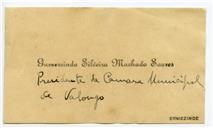 Gumerzindo Silveira Machado Soares
Presidente da Camara Municipal
de Valongo
ERMEZINDE